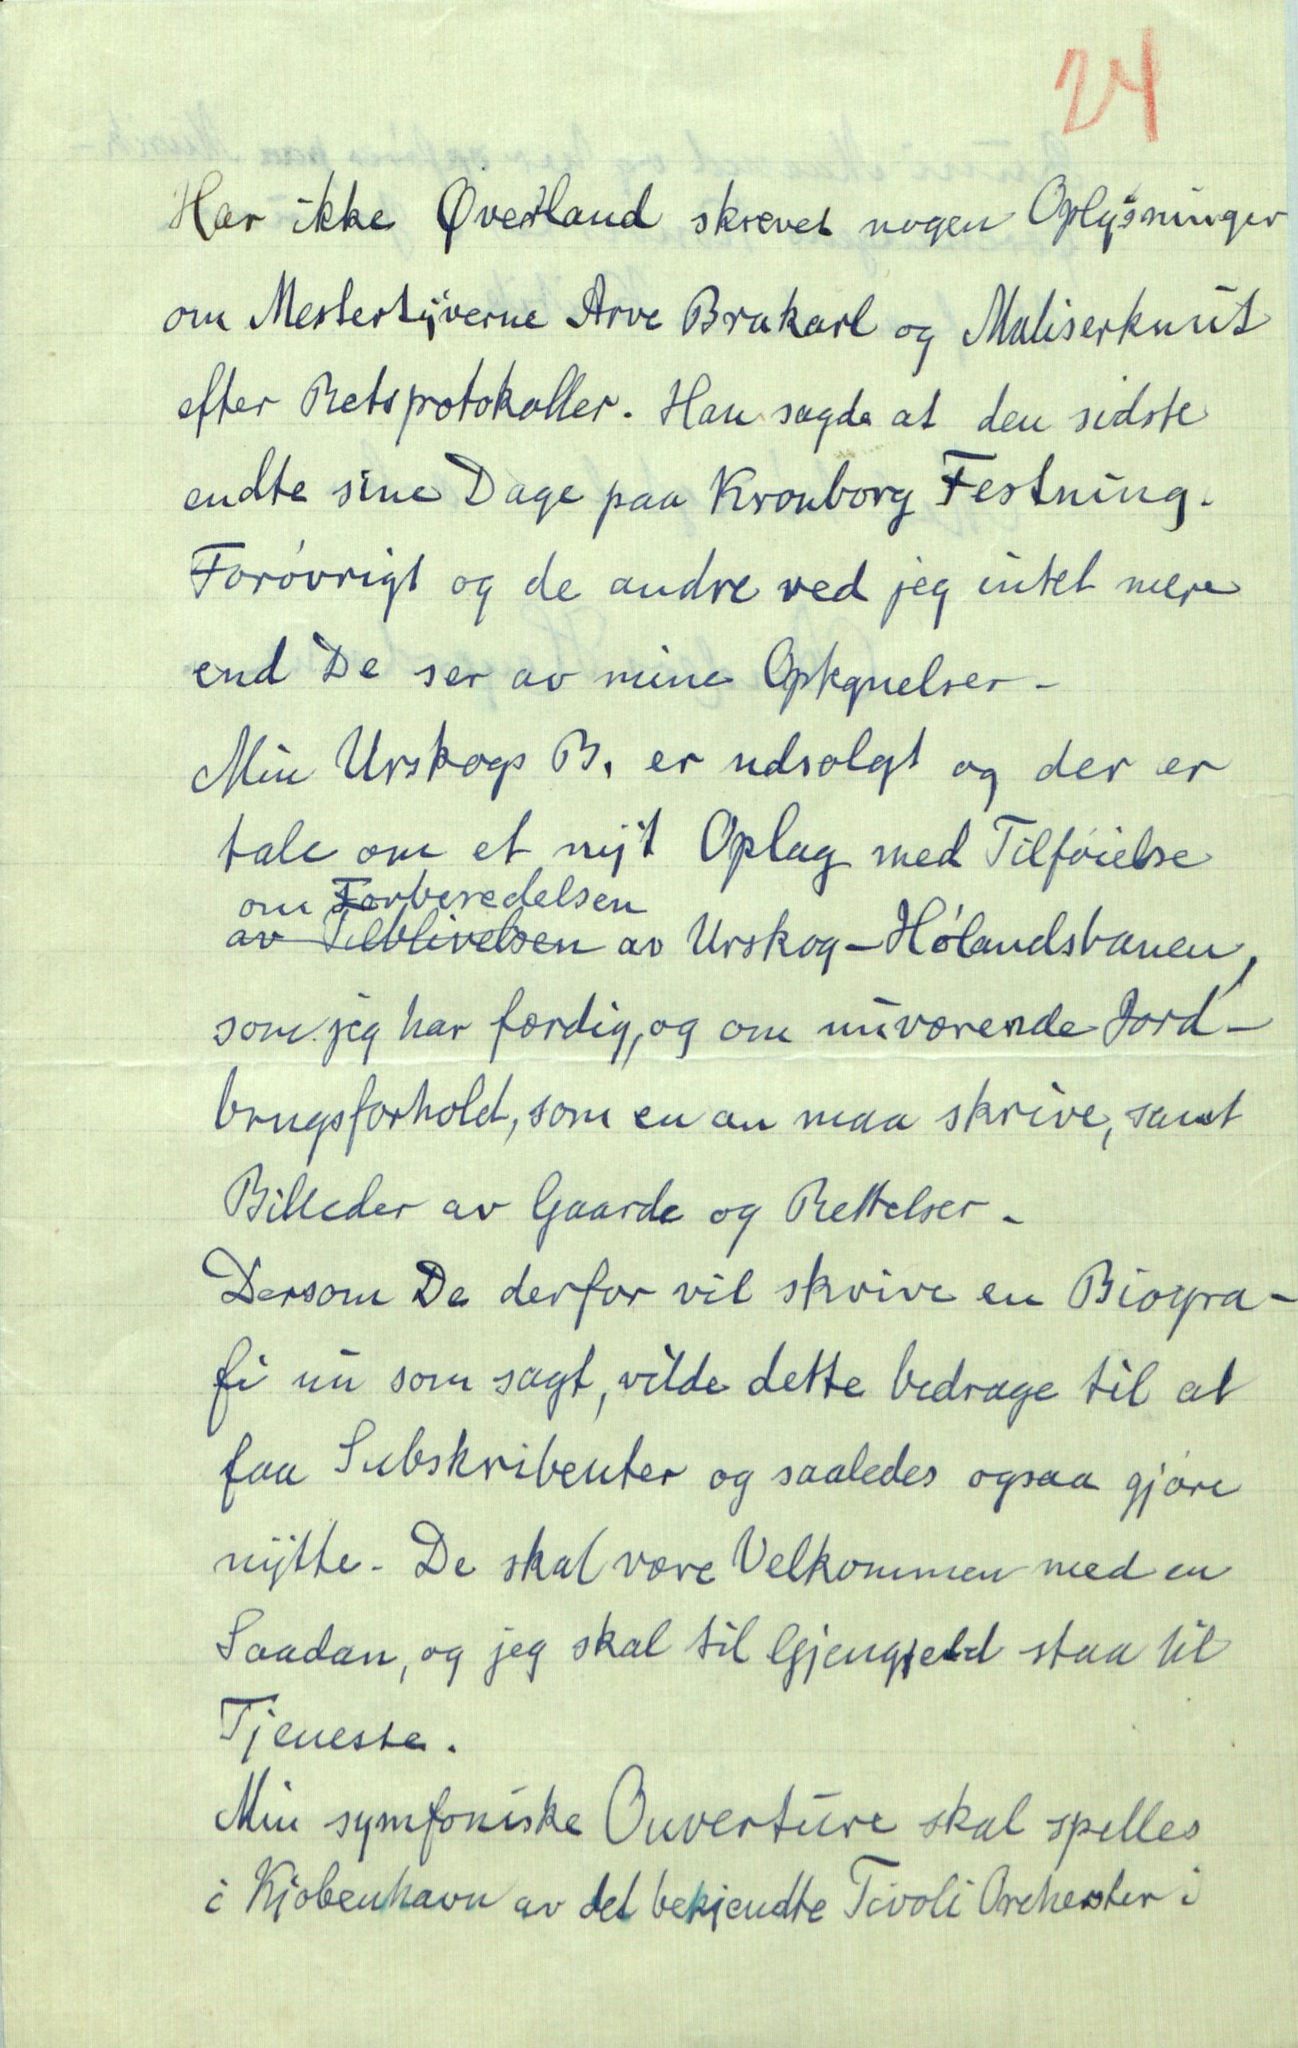 24
Har ikke Øverland skrevet nogen Oplysninger
om Mestertyverne Arve Brakarl og Maliserknut
efter Retsprotokoller. Han sagde at den sidste
endte sine Dage paa Kronborg Festning.
Forøvrigt og de andre ved jeg intet mere
end De ser av mine Optegnelser -
Min Urskogs B. er udsolgt og der er
tale om et nyt Oplag med Tilføielse
om Forberedelsen
av Tilblivelsen av Urskog-Hølandsbanen,
som jeg har færdig, og om nuværende Jord-
brugsforhold, som en an maa skrive, samt
Billeder av Gaarde og Rettelser -
Dersom De derfor vil skrive en Biogra-
fi nu som sagt, vilde dette bedrage til at
faa Subskribenter og saaledes ogsaa gjøre
nytte - De skal være Velkommen med en
Saadan, og jeg skal til Gjengjeld staa til
Tjeneste.
Min symfoniske Ouverture skal spilles
i Kjøbenhavn av det bekjendte Tivoli Orchester i